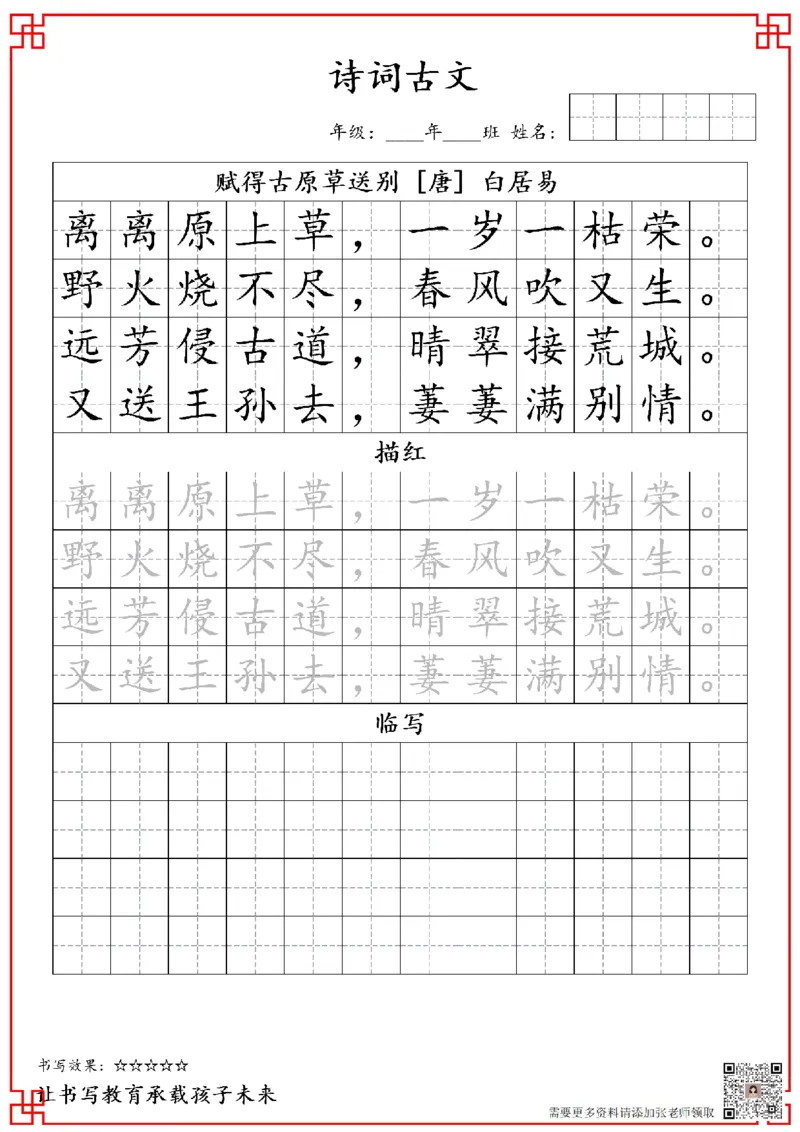 诗词古文
年级：____年____班 姓名：
赋得古原草送别［唐］白居易
离离原上草，一岁一枯荣。
野火烧不尽，春风吹又生。
远芳侵古道，晴翠接荒城。
又送王孙去，萋萋满别情。
描红
离离原上草，一岁一枯荣。
野火烧不尽，春风吹又生。
远芳侵古道，晴翠接荒城。
又送王孙去，萋萋满别情。
临写
书写效果：☆☆☆☆☆
让书写教育承载孩子未来
需要更多资料请添加张老师领取